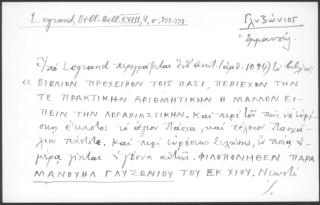 Legrand, Bibl. Hell. XVIII, 2, σ. 397-398.
Γλυζώνιος
Ἐμμανουήλ
Ὑπὸ Legrand περιγράφεται (ἀρ. 1091) τὸ βιβλίον:
« ΒΙΒΛΙΟΝ ΠΡΟΧΕΙΡΟΝ ΤΟΙΣ ΠΑΣΙ, ΠΕΡΙΕΧΟΝ ΤΗΝ
ΤΕ ΠΡΑΚΤΙΚΗΝ ΑΡΙΘΜΗΤΙΚΗΝ Η ΜΑΛΛΟΝ ΕΙ-
ΠΕΙΝ ΤΗΝ ΛΟΓΑΡΙΑΣΤΙΚΗΝ. Καὶ περὶ τοῦ πῶς νὰ εὑρί-
σκῃ ἕκαστος τὸ ἅγιον Πάσχα, καὶ τέλειον Πασχά-
λιον πάντοτε. Καὶ περὶ εὑρέσεως Σελήνης, ἐν ποίᾳ ἡ-
μέρᾳ γίνεται ἡ γέννα αὐτῆς. ΦΙΛΟΠΟΝΗΘΕΝ ΠΑΡΑ
ΜΑΝΟΥΗΛ ΓΛΥΖΩΝΙΟΥ ΤΟΥ ΕΚ ΧΙΟΥ. Νεωστὶ